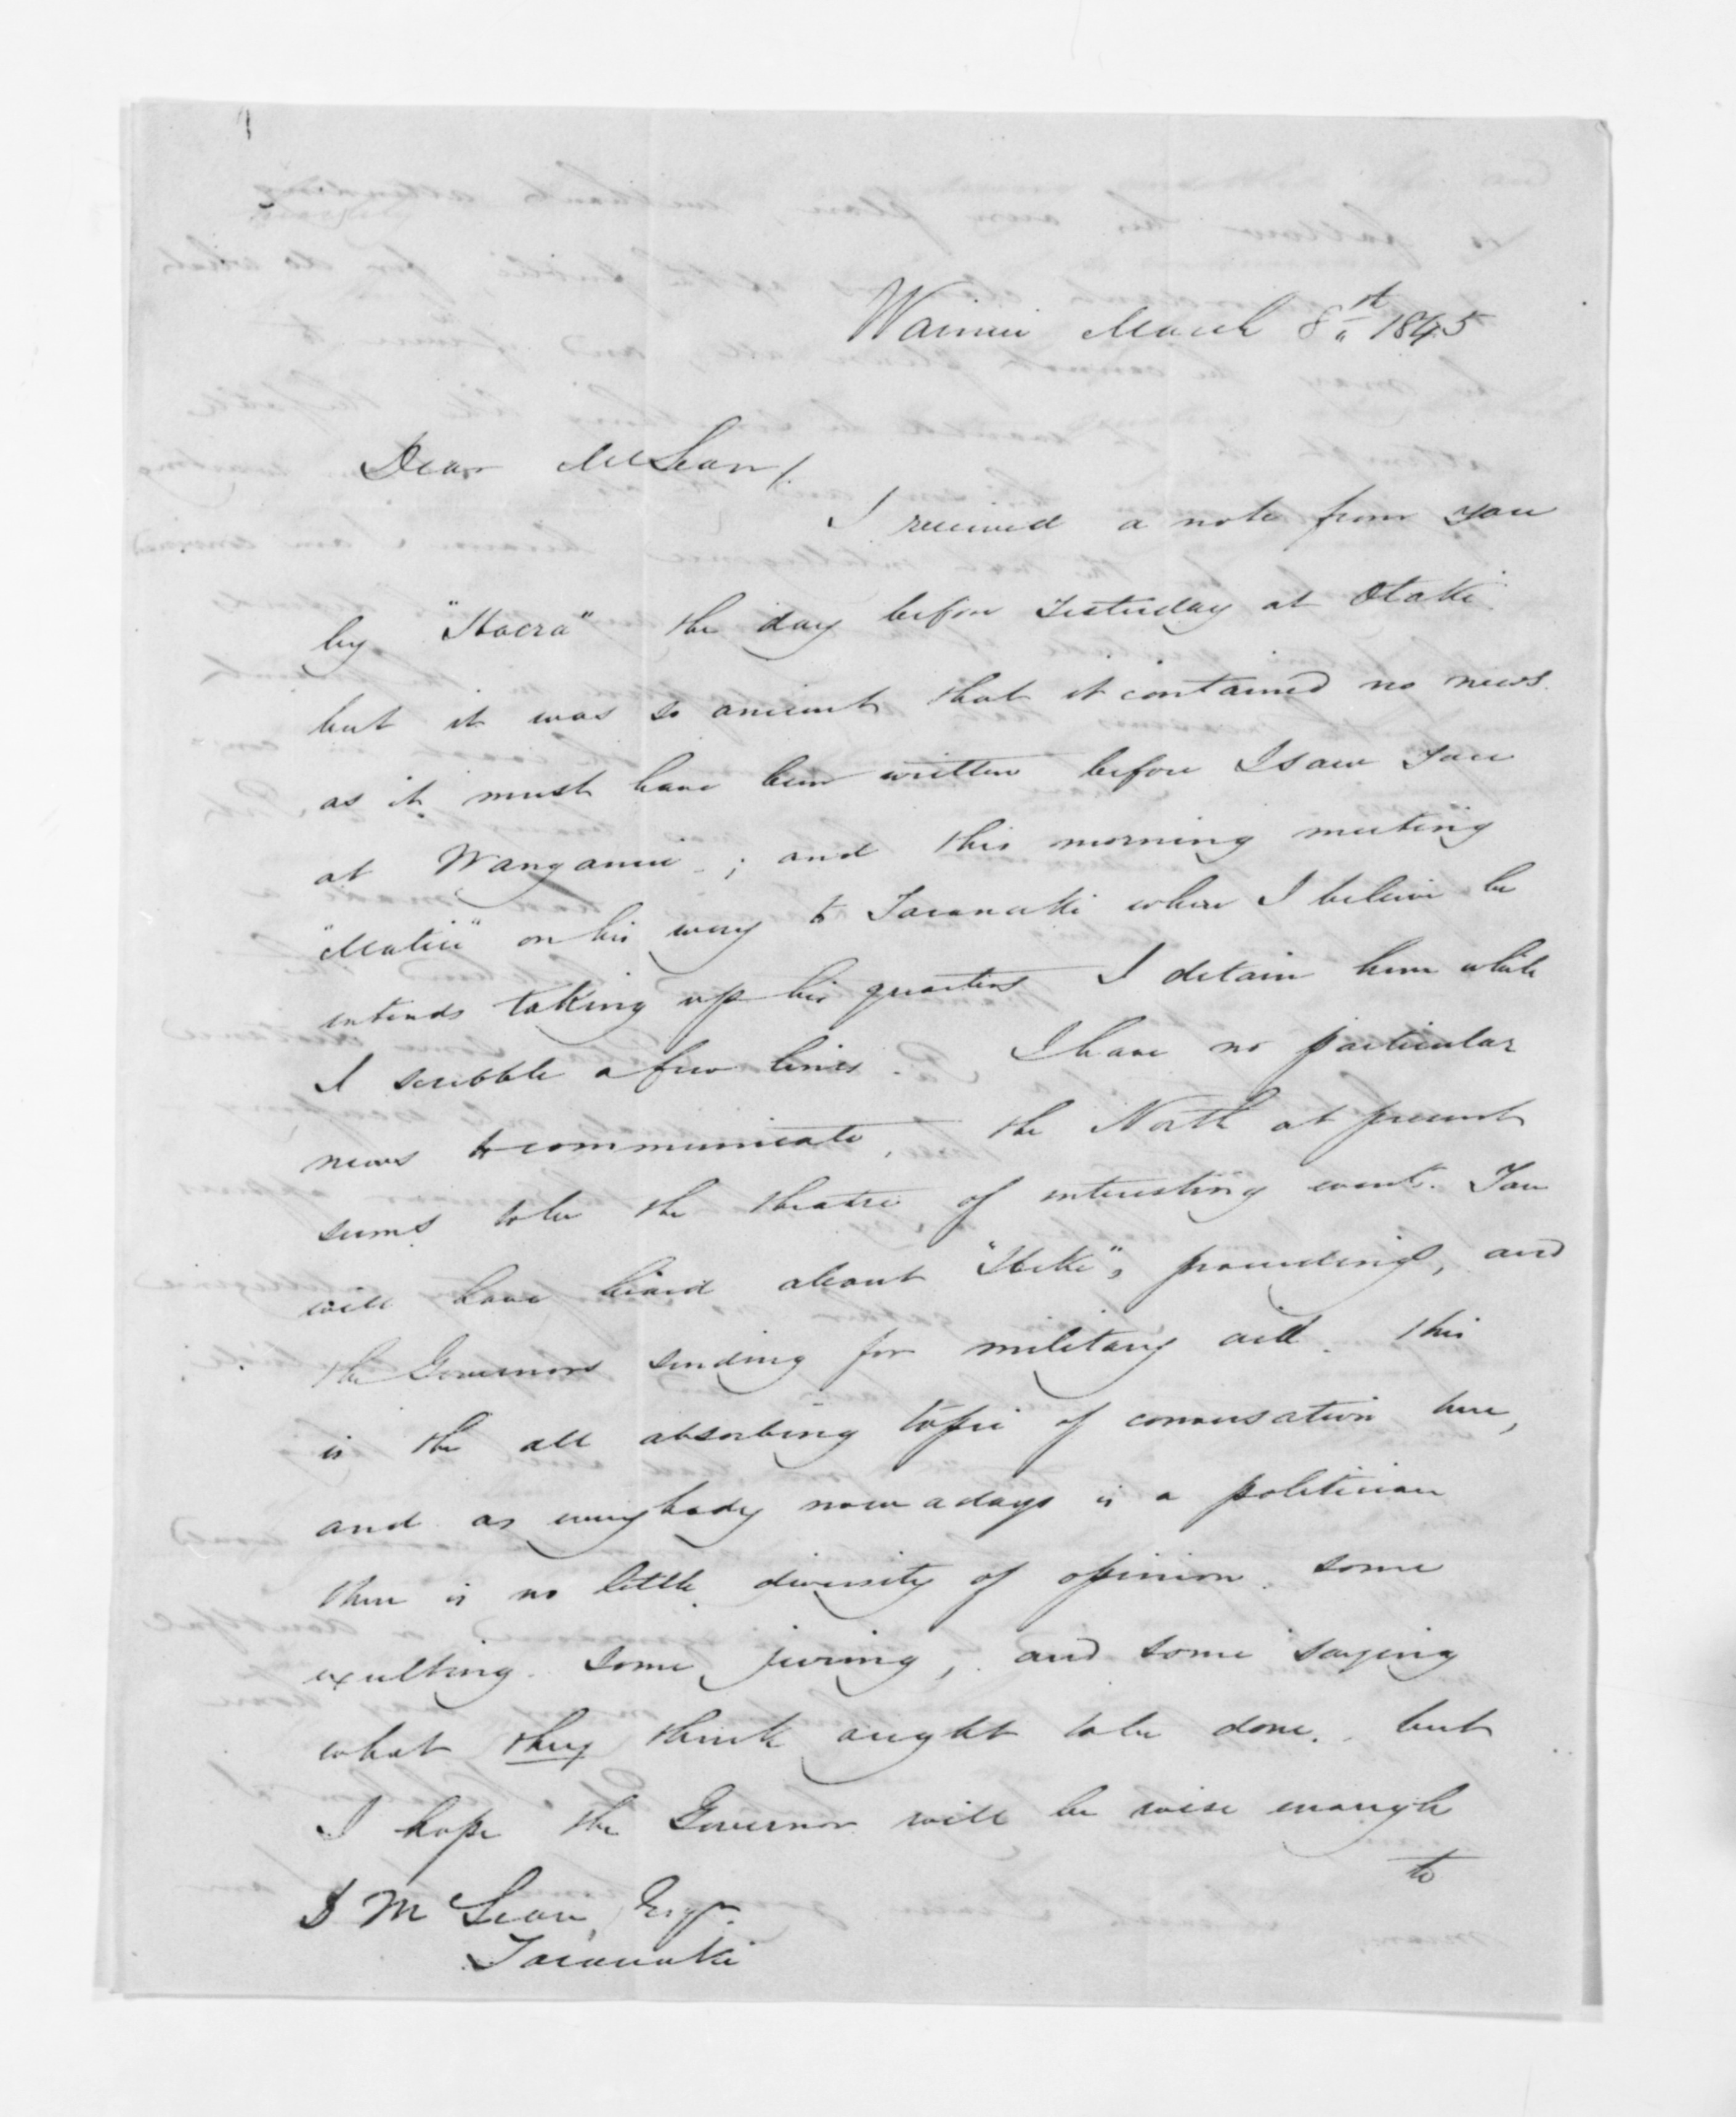 1
Wainui March 8th 1845
Dear McLean/.
I received a note from you
by "Hoera" the day before Yesterday at Otaki
but it was so ancient that it contained no news.
as it must have been written before I saw you
at Wanganui ; and this morning meeting
"Matiu" on his way to Taranaki where I beleive he
intends taking up his quarters I detain him while
I scribble a few lines. I have no particular
news to communicate, the North at present
seems to be the theatre of interesting events. You
will have heard about "Heke"s proceedings, and
the Governors sending for military aid. this
is the all absorbing topic of conversation here,
and as every body now a days is a politician
there is no little diversity of opinion. some
exulting. some jeering, and some saying
what they think aught to be done. but
I hope the Governor will be wise enough
to
D McLean, Esqr.
Taranaki